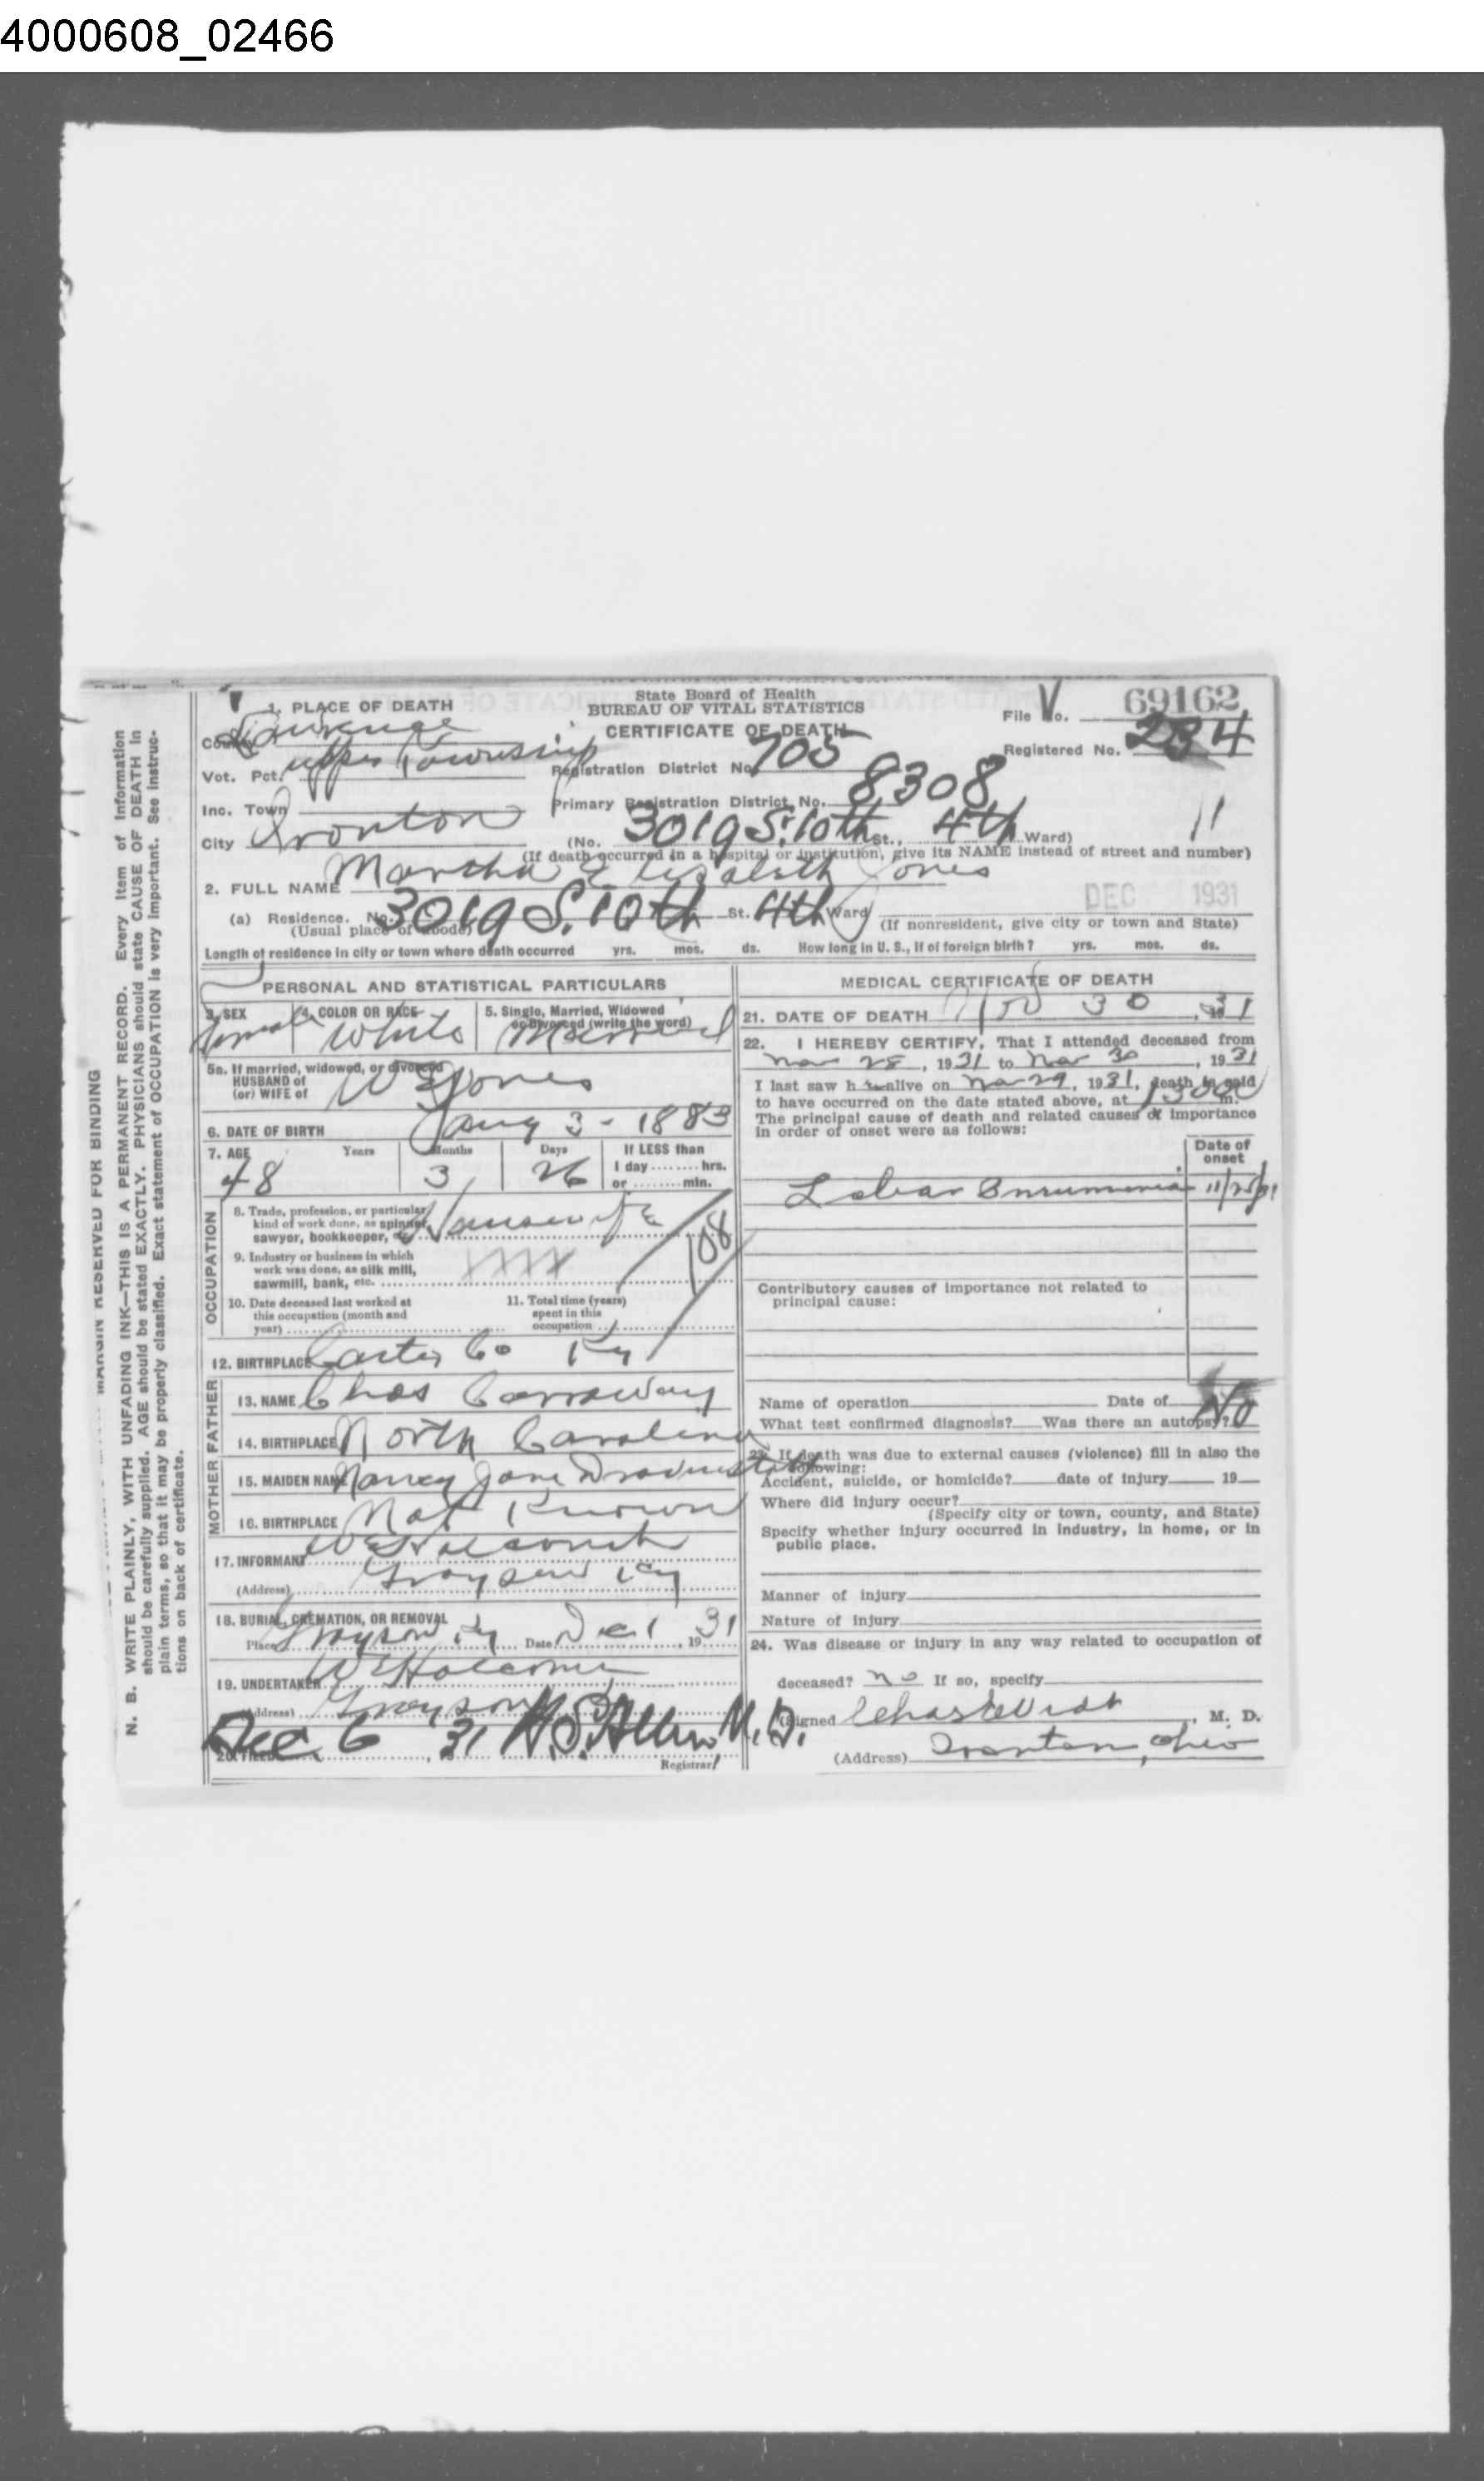 4000608_02466
State Board of Health
BUREAU OF VITAL STATISTICS
CERTIFICATE OF DEATH
1. PLACE OF DEATH
File No. 69162
Registered No. 234
County Lawrence
Vot. Pct. Upper Township
Registration District No. 705
Inc. Town
Primary Registration District No. 8308
City Ironton (No. 3019 S. 10th St., 4th Ward)
11
(If death occurred in a hospital or institution, give its NAME instead of street and number)
2. FULL NAME Martha Elizabeth Jones
DEC 1931
(a) Residence. No. 3019 S. 10th St. 4th Ward
(Usual place of abode) (If nonresident, give city or town and State)
Length of residence in city or town where death occurred yrs. mos. ds. How long in U. S., if of foreign birth? yrs. mos. ds.
PERSONAL AND STATISTICAL PARTICULARS
3. SEX 4. COLOR OR RACE 5. Single, Married, Widowed
or Divorced (write the word)
Female White Married
5a. If married, widowed, or divorced
HUSBAND of
(or) WIFE of W E Jones
6. DATE OF BIRTH Aug 3 - 1883
7. AGE Years Months Days If LESS than
48 3 26 1 day ........ hrs.
or ........ min.
OCCUPATION
8. Trade, profession, or particular
kind of work done, as spinner,
sawyer, bookkeeper, etc. Housewife
108
9. Industry or business in which
work was done, as silk mill,
sawmill, bank, etc.
10. Date deceased last worked at
this occupation (month and
year)
11. Total time (years)
spent in this
occupation
12. BIRTHPLACE Carter Co Ky
FATHER
13. NAME Chas Carroway
14. BIRTHPLACE North Carolina
MOTHER
15. MAIDEN NAME Nancy Jane
16. BIRTHPLACE Not Known
17. INFORMANT W E Holcomb
(Address) Grayson Ky
18. BURIAL, CREMATION, OR REMOVAL
Place Grayson Ky Date Dec 1, 1931
19. UNDERTAKER W E Holcomb
(Address) Grayson
20. FILED Dec. 6, 31 H.S. Allen M.D.
Registrar
MEDICAL CERTIFICATE OF DEATH
21. DATE OF DEATH Nov 30, 31
22. I HEREBY CERTIFY, That I attended deceased from
Nov 28, 1931 to Nov 30, 1931
I last saw her alive on Nov 29, 1931, death is said
to have occurred on the date stated above, at m.
The principal cause of death and related causes of importance
in order of onset were as follows:
Date of
onset
Lobar Pneumonia 11/25/31
Contributory causes of importance not related to
principal cause:
Name of operation Date of
What test confirmed diagnosis? Was there an autopsy? No
23. If death was due to external causes (violence) fill in also the
following:
Accident, suicide, or homicide? date of injury 19
Where did injury occur?
(Specify city or town, county, and State)
Specify whether injury occurred in industry, in home, or in
public place.
Manner of injury
Nature of injury
24. Was disease or injury in any way related to occupation of
deceased? no If so, specify
(Signed , M. D.
(Address) Ironton, Ohio
MARGIN RESERVED FOR BINDING
N. B. WRITE PLAINLY, WITH UNFADING INK—THIS IS A PERMANENT RECORD. Every item of information
should be carefully supplied. AGE should be stated EXACTLY. PHYSICIANS should state CAUSE OF DEATH in
plain terms, so that it may be properly classified. Exact statement of OCCUPATION is very important. See instruc-
tions on back of certificate.